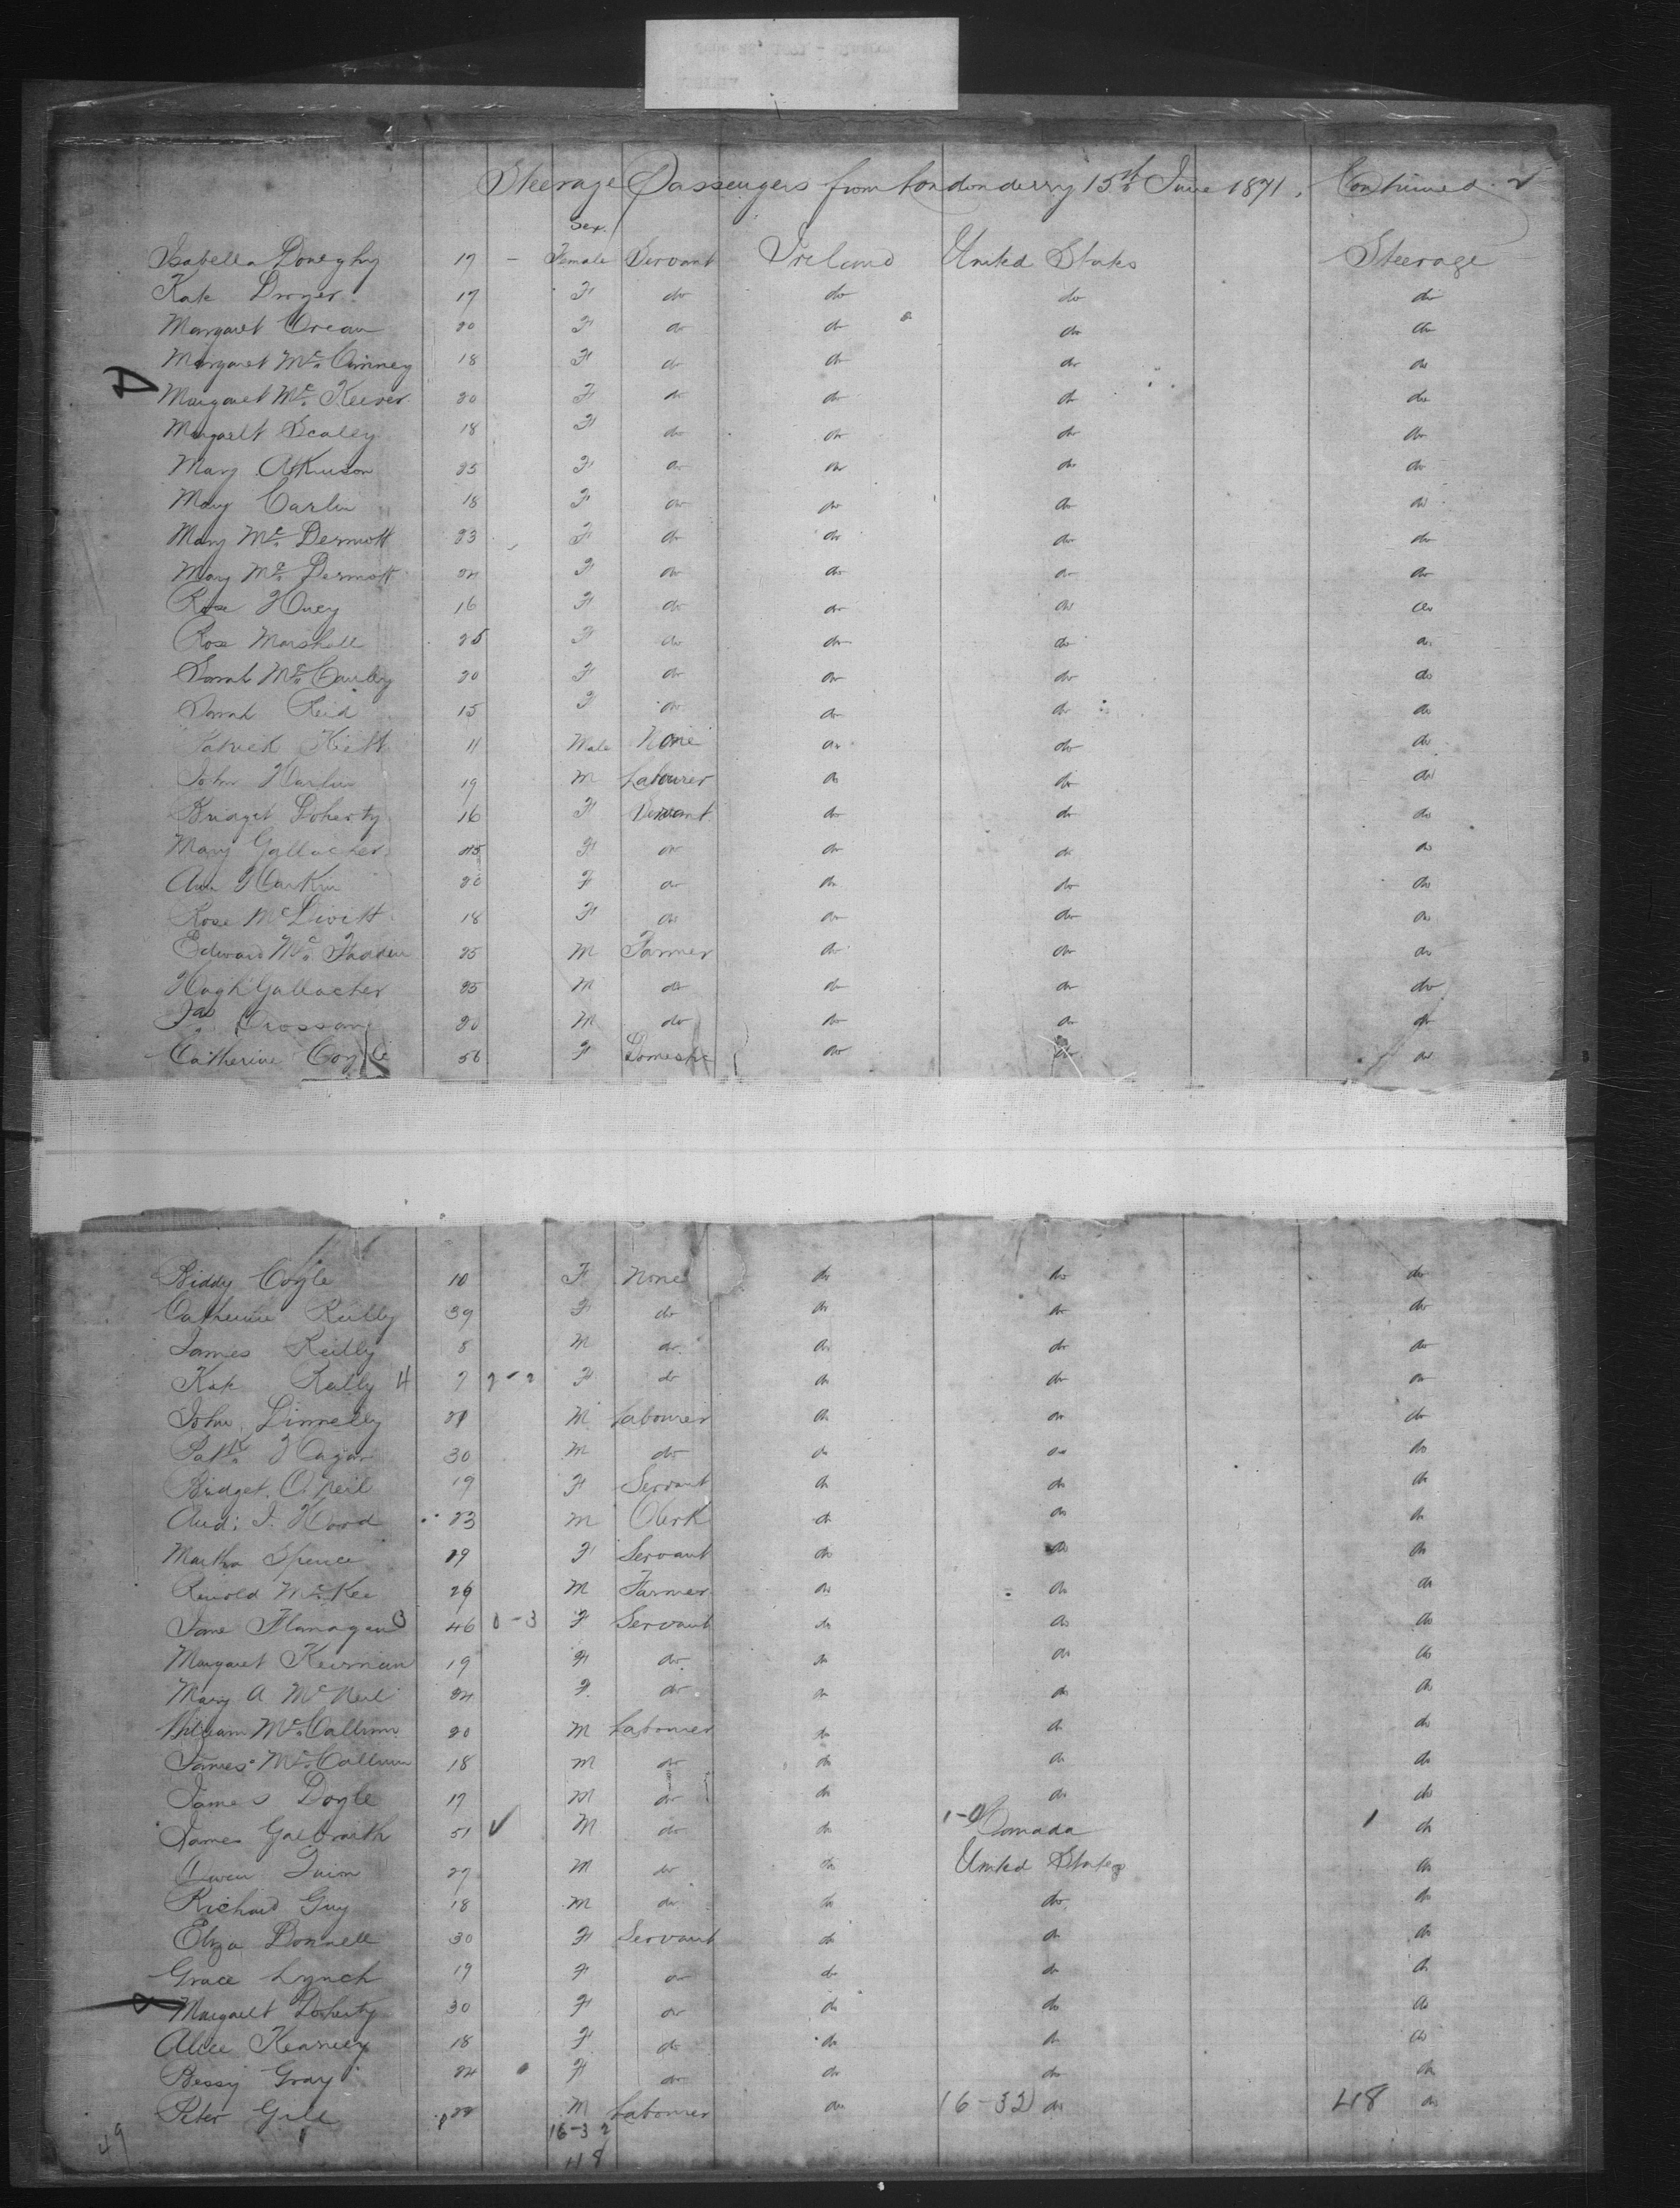 Steerage Passengers from Londonderry 15th June 1871. Continued
Sex.
Isabella Doneghy 17 - Female Servant Ireland United States Steerage
Kate Dwyer 17 F do do do do
Margaret Crean 20 F do do do do
Margaret Mc. Cinney 18 F do do do do
Margaret Mc. Keever 20 F do do do do
Margaret Scally 18 F do do do do
Mary Atkinson 25 F do do do do
Mary Carlin 18 F do do do do
Mary Mc. Dermott 23 F do do do do
Mary Mc. Dermott 24 F do do do do
Rose Huey 16 F do do do do
Rose Marshall 25 F do do do do
Sarah Mc. Cauley 20 F do do do do
Sarah Reid 15 F do do do do
Patrick 11 Male None do do do
John Harlin 19 M Labourer do do do
Bridget Doherty 16 F Servant do do do
Mary Gallacher 25 F do do do do
Ann Harkin 20 F do do do do
Rose McDivitt 18 F do do do do
Edward Mc. Fadden 25 M Farmer do do do
Hugh Gallacher 25 M do do do do
Jas Crossan 20 M do do do do
Catherine Coyle 56 F Domestic do do do
Biddy Coyle 10 F None do do do
Catherine Reilly 39 F do do do do
James Reilly 8 M do do do do
Kate Reilly 4 7 2-2 F do do do do
John Dinnelly 21 M Labourer do do do
Patk. Hagan 30 M do do do do
Bridget O. Neil 19 F Servant do do do
And: J. Hood 23 M Clerk do do do
Martha Spence 29 F Servant do do do
Mc. Kee 26 M Farmer do do do
Jane Flanagan 3 46 0-3 F Servant do do do
Margaret Keirnan 19 F do do do do
Mary A McNeil 24 F. do do do do
William Mc. Callum 20 M Labourer do do do
James Mc. Callum 18 M do do do do
James Doyle 17 M do do do do
James Galbraith 51 ✓ M do do 1-0 Canada 1 do
Owen Quinn 27 M do do United States do
Richard Guy 18 M do do do do
Eliza Donnell 30 F Servant do do do
Grace Lynch 19 F do do do do
Margaret Doherty 30 F do do do do
Alice Kearney 18 F do do do do
Bessy Gray 24 F do do do do
Peter Gill 22 M Labourer do 16-32 do 48 do
16-32
48
49